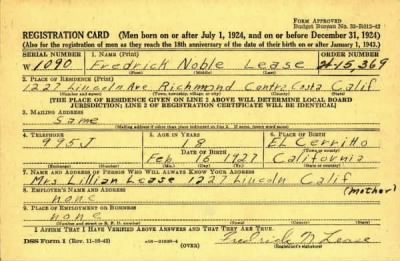 Form Approved
Budget Bureau No. 33-R013-42
REGISTRATION CARD (Men born on or after July 1, 1924, and on or before December 31, 1924)
(Also for the registration of men as they reach the 18th anniversary of the date of their birth on or after January 1, 1943.)
SERIAL NUMBER 1. NAME (Print) ORDER NUMBER
W 1090 Fredrick Noble Lease 15,369
(First) (Middle) (Last)
2. PLACE OF RESIDENCE (Print)
1227 Lincoln Ave Richmond Contra Costa Calif
(Number and street) (Town, township, village, or city) (County) (State)
[THE PLACE OF RESIDENCE GIVEN ON LINE 2 ABOVE WILL DETERMINE LOCAL BOARD
JURISDICTION; LINE 2 OF REGISTRATION CERTIFICATE WILL BE IDENTICAL]
3. MAILING ADDRESS
Same
[Mailing address if other than place indicated on line 2. If same, insert word same]
4. TELEPHONE 5. AGE IN YEARS 6. PLACE OF BIRTH
995J 18 El Cerrito
DATE OF BIRTH
Feb 16 1927 California
(Mo.) (Day) (Yr.) (State or country)
7. NAME AND ADDRESS OF PERSON WHO WILL ALWAYS KNOW YOUR ADDRESS
Mrs Lillian Lease 1227 Lincoln Calif
(mother)
8. EMPLOYER'S NAME AND ADDRESS
none
9. PLACE OF EMPLOYMENT OR BUSINESS
none
(Number and street or R. F. D. number) (Town) (County) (State)
I AFFIRM THAT I HAVE VERIFIED ABOVE ANSWERS AND THAT THEY ARE TRUE.
DSS Form 1 (Rev. 11-16-42) (OVER) Fredrick N Lease
(Registrant's signature)